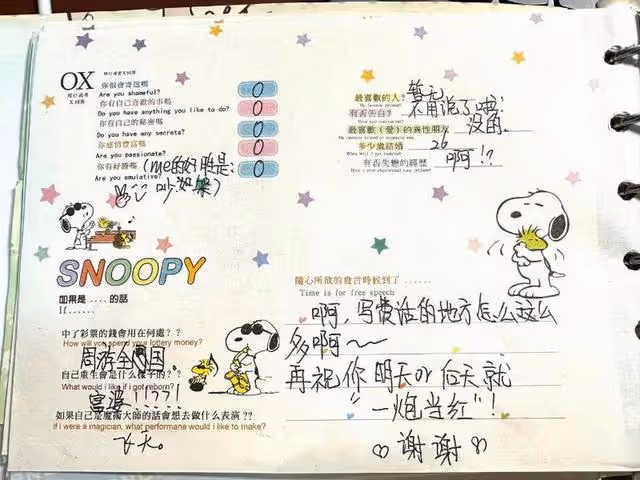 OX
用O或者
X回答
你很會害羞嗎
Are you shameful?
O
你有自己喜歡的事嗎
Do you have anything you like to do?
O
你有自己的秘密嗎
Do you have any secrets?
O
你感情豐富嗎
Are you passionate?
O
你有好勝嗎
(me的好胜是:
Are you emulative?
吵架)
O
最喜歡的人?
暂无
有否告白?
不用说了喂!
最喜歡(愛)的異性朋友
没的。
多少歲結婚
26
有否失戀的經歷
啊!?
SNOOPY
如果是 .... 的話
If......
中了彩票的錢會用在何處??
How will you spend your lottery money?
周游全国
自己重生會是什樣子的??
What would i like if i got reborn?
富婆!!??!
如果自己是魔術大師的話會想去做什么表演??
If i were a magician, what performane would i like to make?
飞天。
隨心所欲的發言時候到了 ......
Time is for free speech
啊,写废话的地方怎么这么
多啊~
再祝你明天or后天就
"一炮当红"!
谢谢